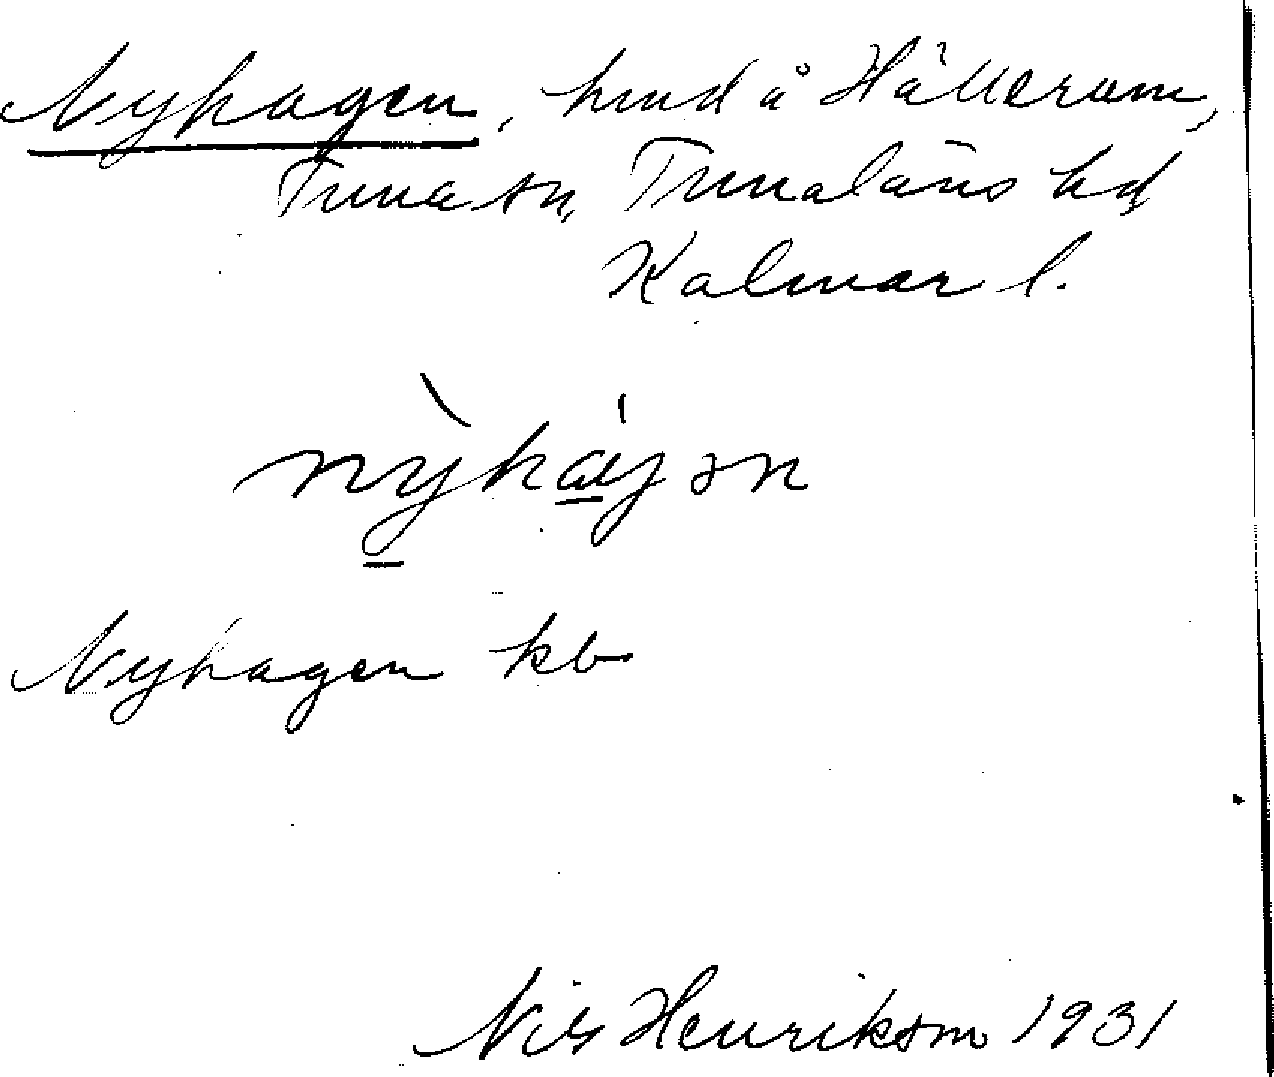 Nyhagen, hmd å Hälleram,
Tuna sn, Tunaläns hd
Kalmar l.
nỳhàgən
Nyhagen kb
Nils Henrikson 1931